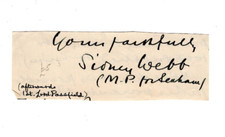 Yours faithfully
Sidney Webb
(M.P. for Seaham)
(afterwards
Lord Passfield)